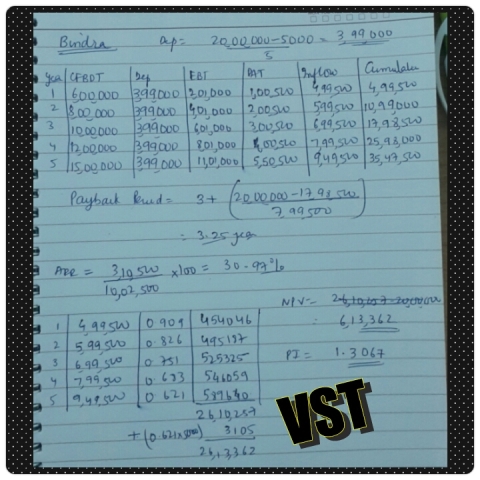 Bindra Dep = 20,00,000-5000 = 3,99,000
5
Year CFBDT Dep EBT PAT Inflow Cumulative
1 600,000 399,000 2,01,000 1,00,500 4,99,500 4,99,500
2 800,000 399,000 4,01,000 2,00,500 5,99,500 10,99,000
3 10,00,000 399,000 6,01,000 3,00,500 6,99,500 17,98,500
4 12,00,000 399,000 8,01,000 4,00,500 7,99,500 25,98,000
5 15,00,000 399,000 11,01,000 5,50,500 9,49,500 35,47,500
Payback Period = 3+ (20,00,000-17,98,500
7,99,500)
= 3.25 year
ARR = 3,10,500 ×100 = 30.97%
10,02,500
NPV = 26,10,257-20,00,000
= 6,13,362
PI = 1.3067
1 4,99,500 0.909 454046
2 5,99,500 0.826 495187
3 6,99,500 0.751 525325
4 7,99,500 0.683 546059
5 9,49,500 0.621 589640
26,10,257
+(0.621×5000) 3105
26,13,362
VST